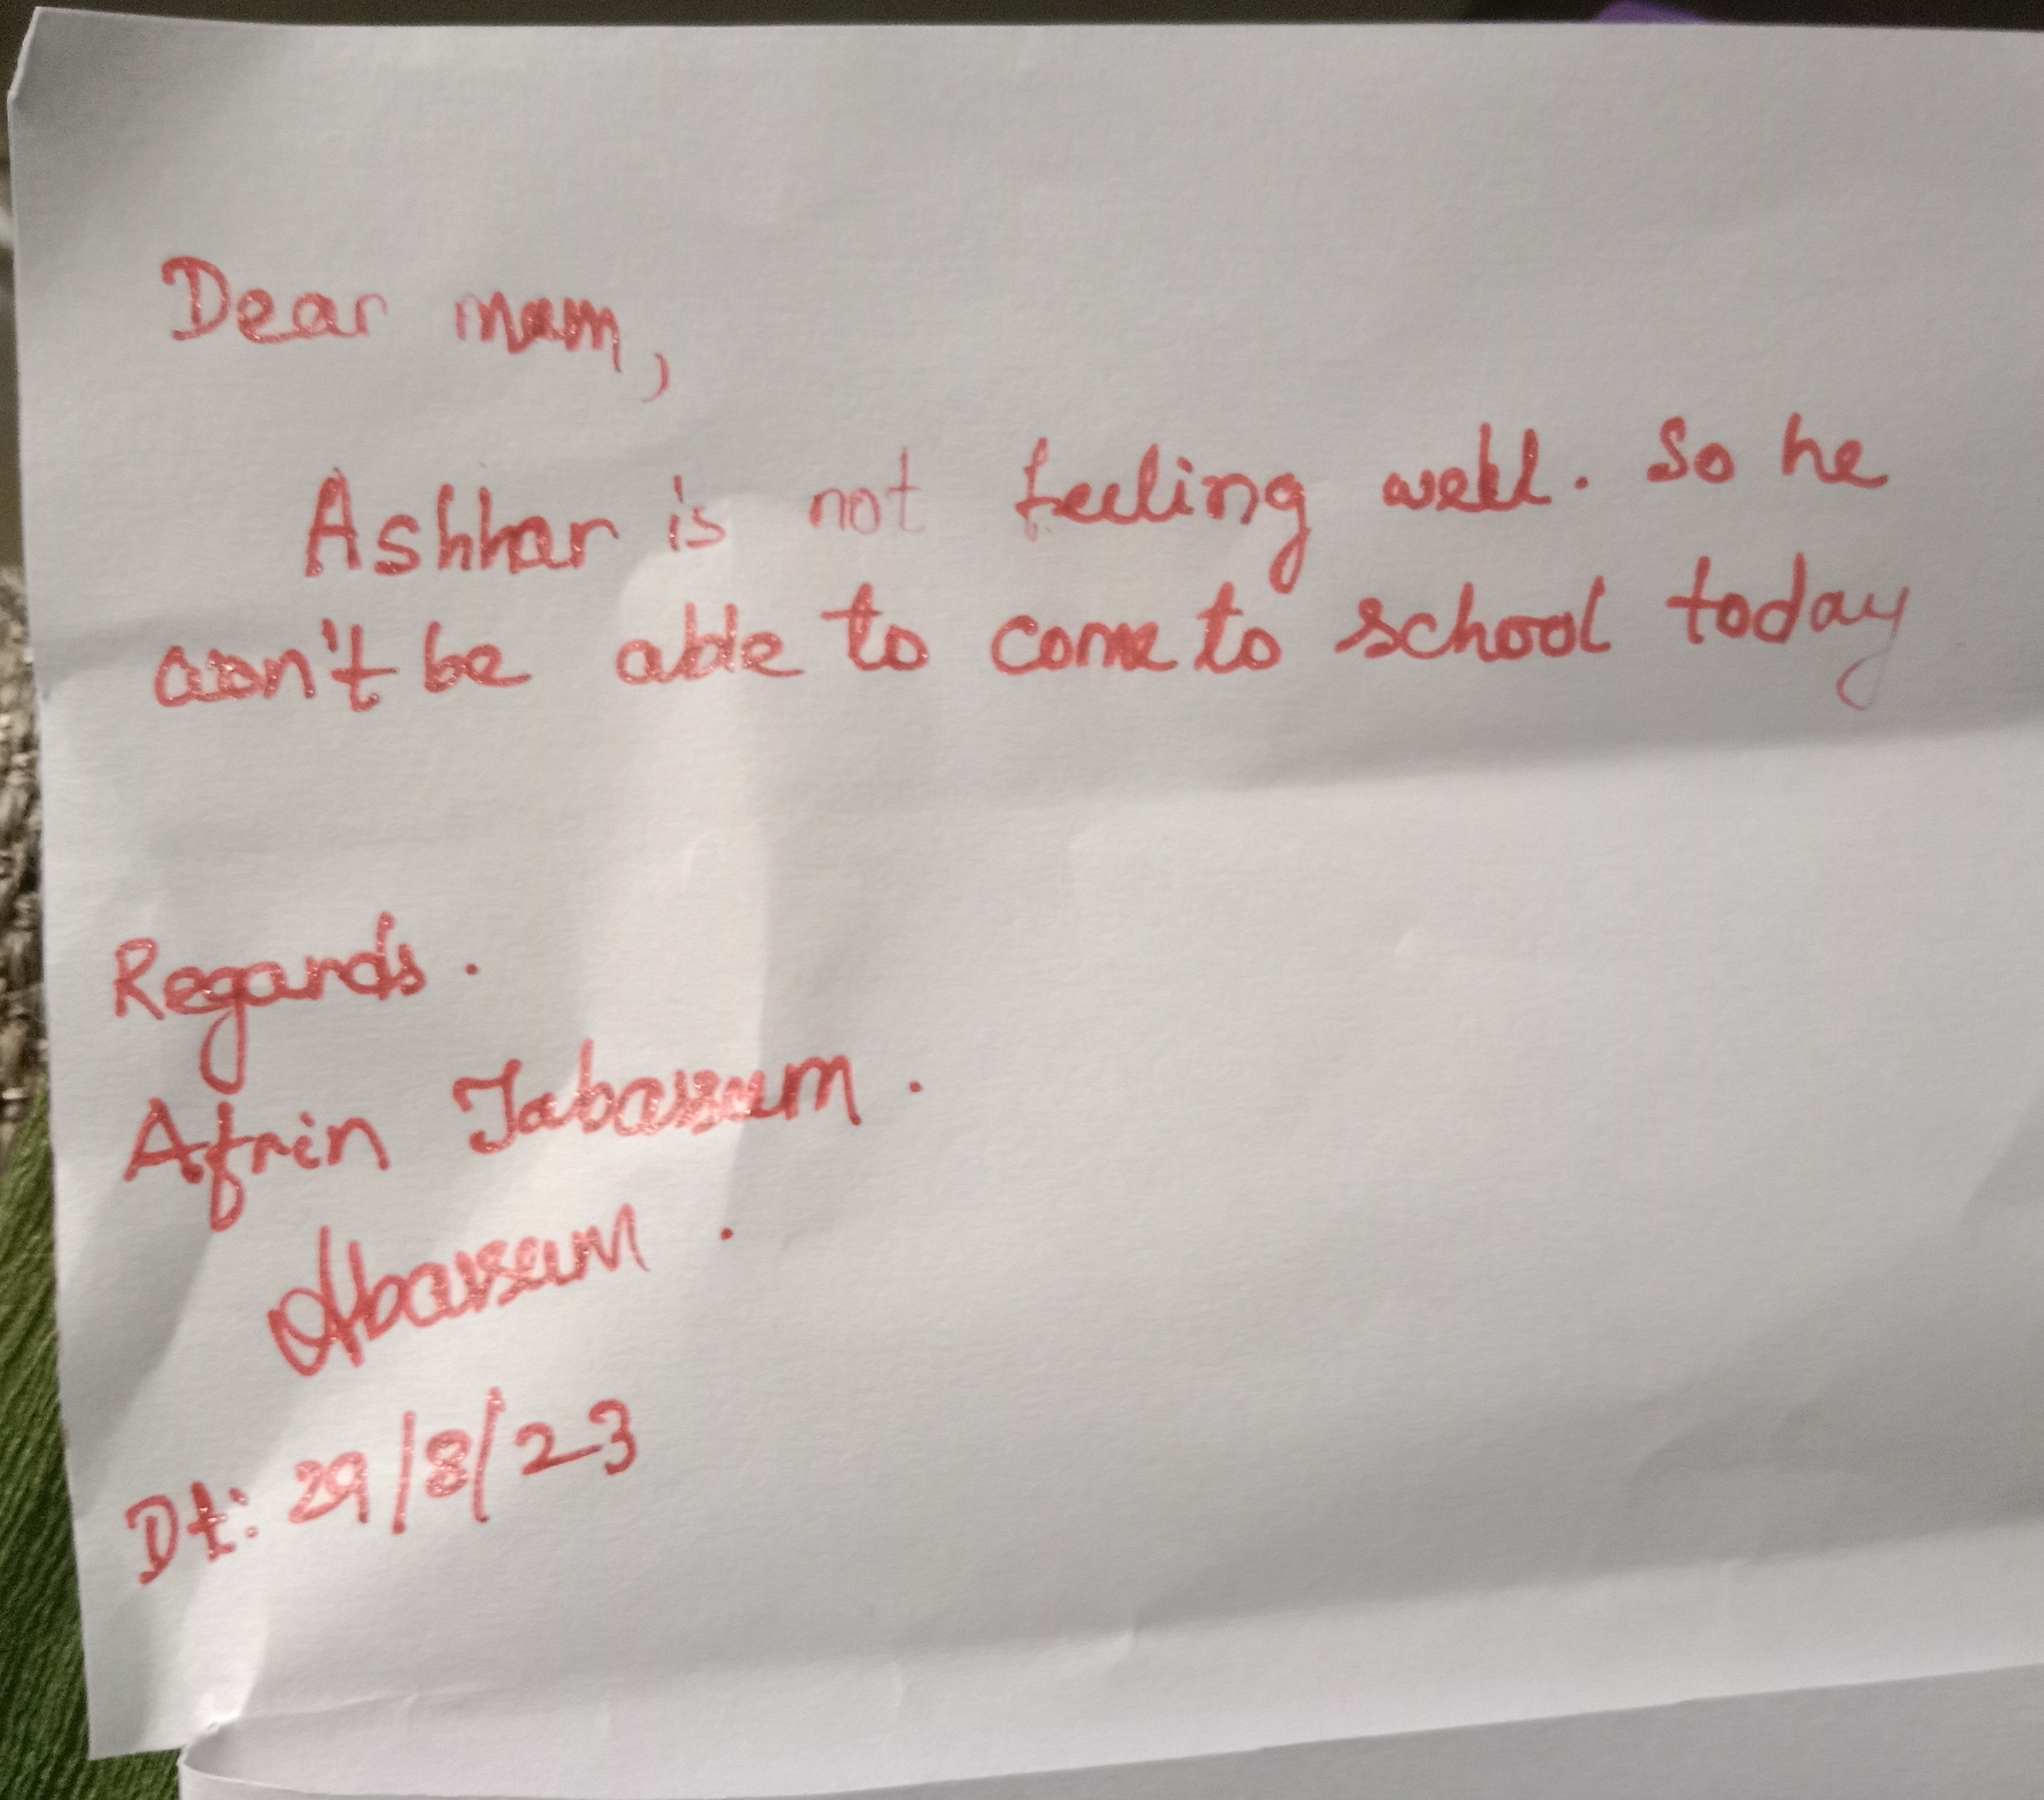 Dear mam,
Ashhar is not feeling well. So he
won't be able to come to school today
Regards.
Afrin Tabassum.
Dt: 29/8/23